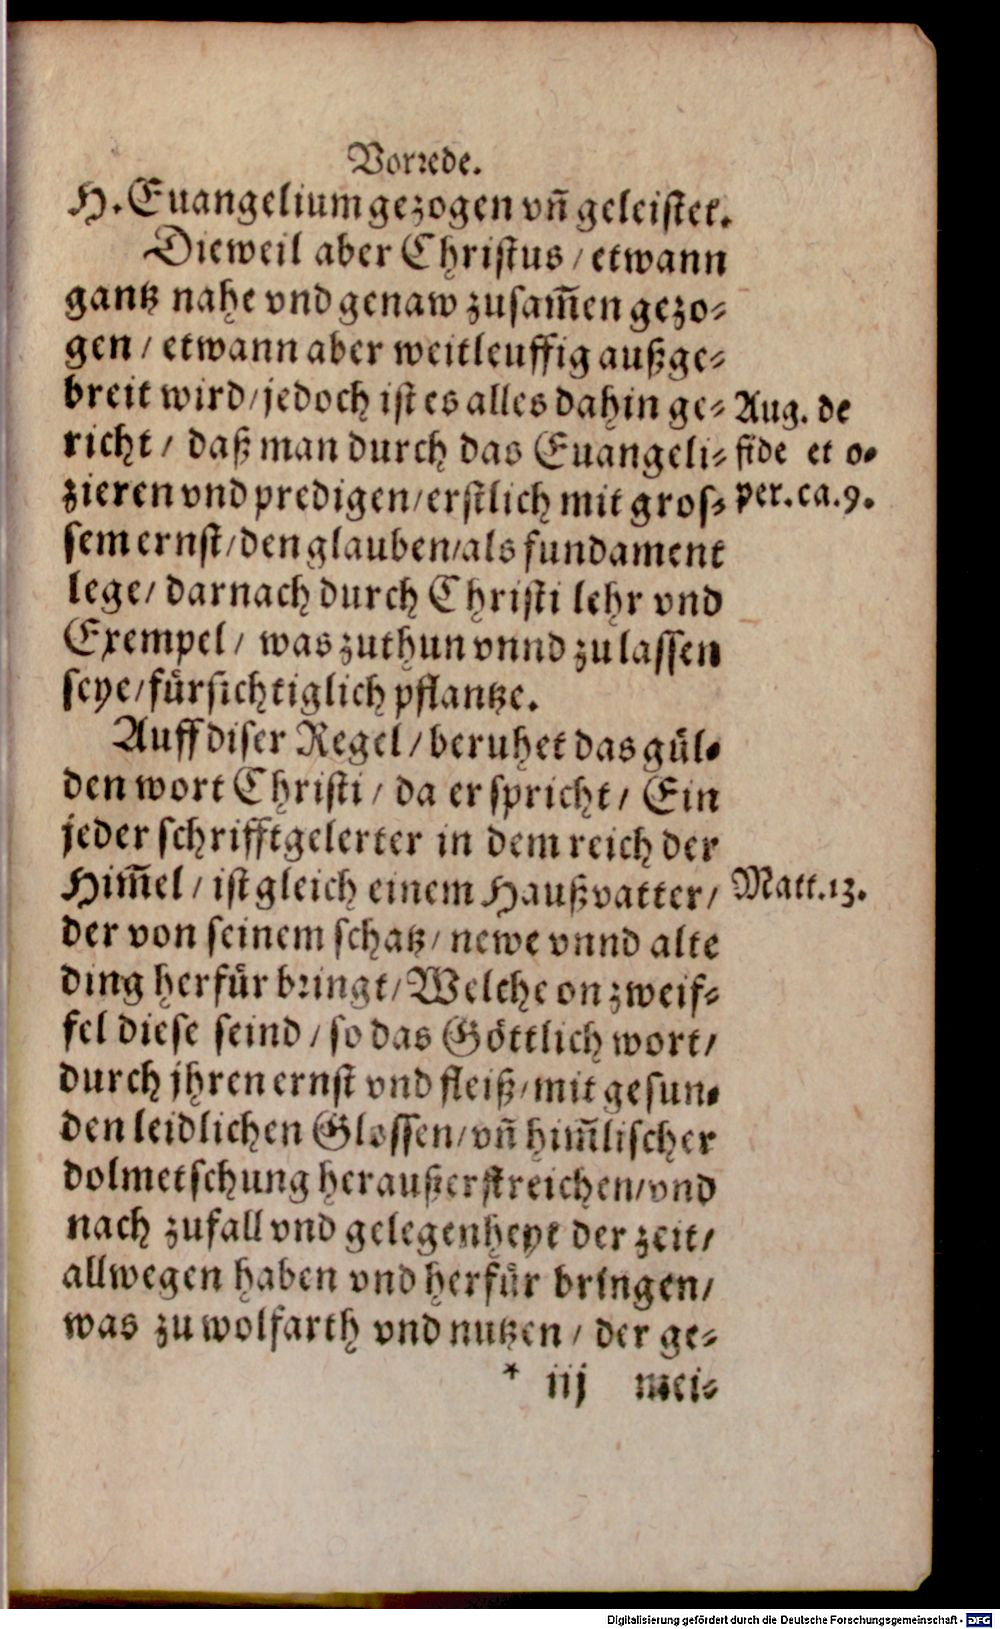 Vorrede.
H. Euangelium gezogen vñ geleistet.
Dieweil aber Christus / etwann
gantz nahe vnd genaw zusam̃en gezo-
gen / etwann aber weitleuffig außge-
breit wird / jedoch ist es alles dahin ge-
richt / daß man durch das Euangeli-
zieren vnd predigen / erstlich mit gros-
sem ernst / den glauben / als fundament
lege / darnach durch Christi lehr vnd
Exempel / was zuthun vnnd zu lassen
seye / fürsichtiglich pflantze.
Aug. de
fide et o-
per. ca. 9.
Auff diser Regel / beruhet das gül-
den wort Christi / da er spricht / Ein
jeder schrifftgelerter in dem reich der
Him̃el / ist gleich einem Haußvatter /
der von seinem schatz / newe vnnd alte
ding herfür bringt / Welche on zweif-
fel diese seind / so das Göttlich wort /
durch jhren ernst vnd fleiß / mit gesun-
den leidlichen Glossen / vñ him̃lischer
dolmetschung heraußerstreichen / vnd
nach zufall vnd gelegenheyt der zeit /
allwegen haben vnd herfür bringen /
was zu wolfarth vnd nutzen / der ge-
Matt. 13.
* iij mei-
Digitalisierung gefördert durch die Deutsche Forschungsgemeinschaft - DFG